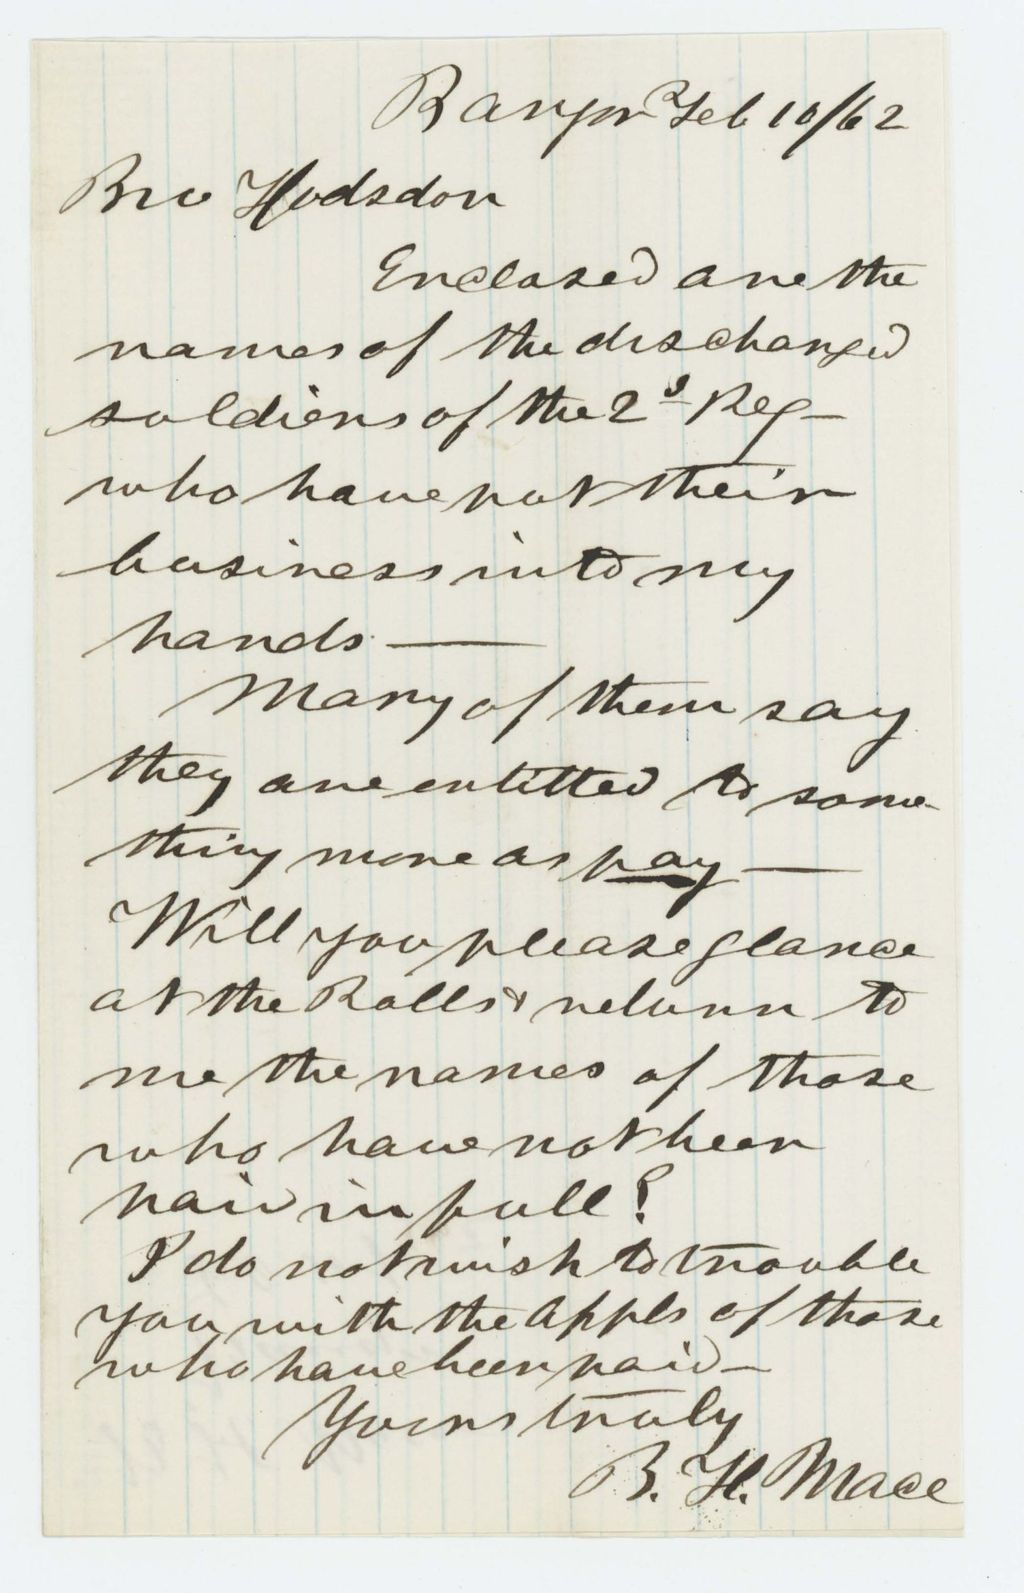 Bangor Feb 10/62
Bro Hodsdon
Enclosed are the
names of the discharged
soldiers of the 2d Reg-
who have put their
business into my
hands —
Many of them say
they are entitled to some-
thing more as pay —
Will you please glance
at the Rolls & return to
me the names of those
who have not been
paid in full?
I do not wish to trouble
you with the appls of those
who have been paid -
Yours truly
B. H. Mace